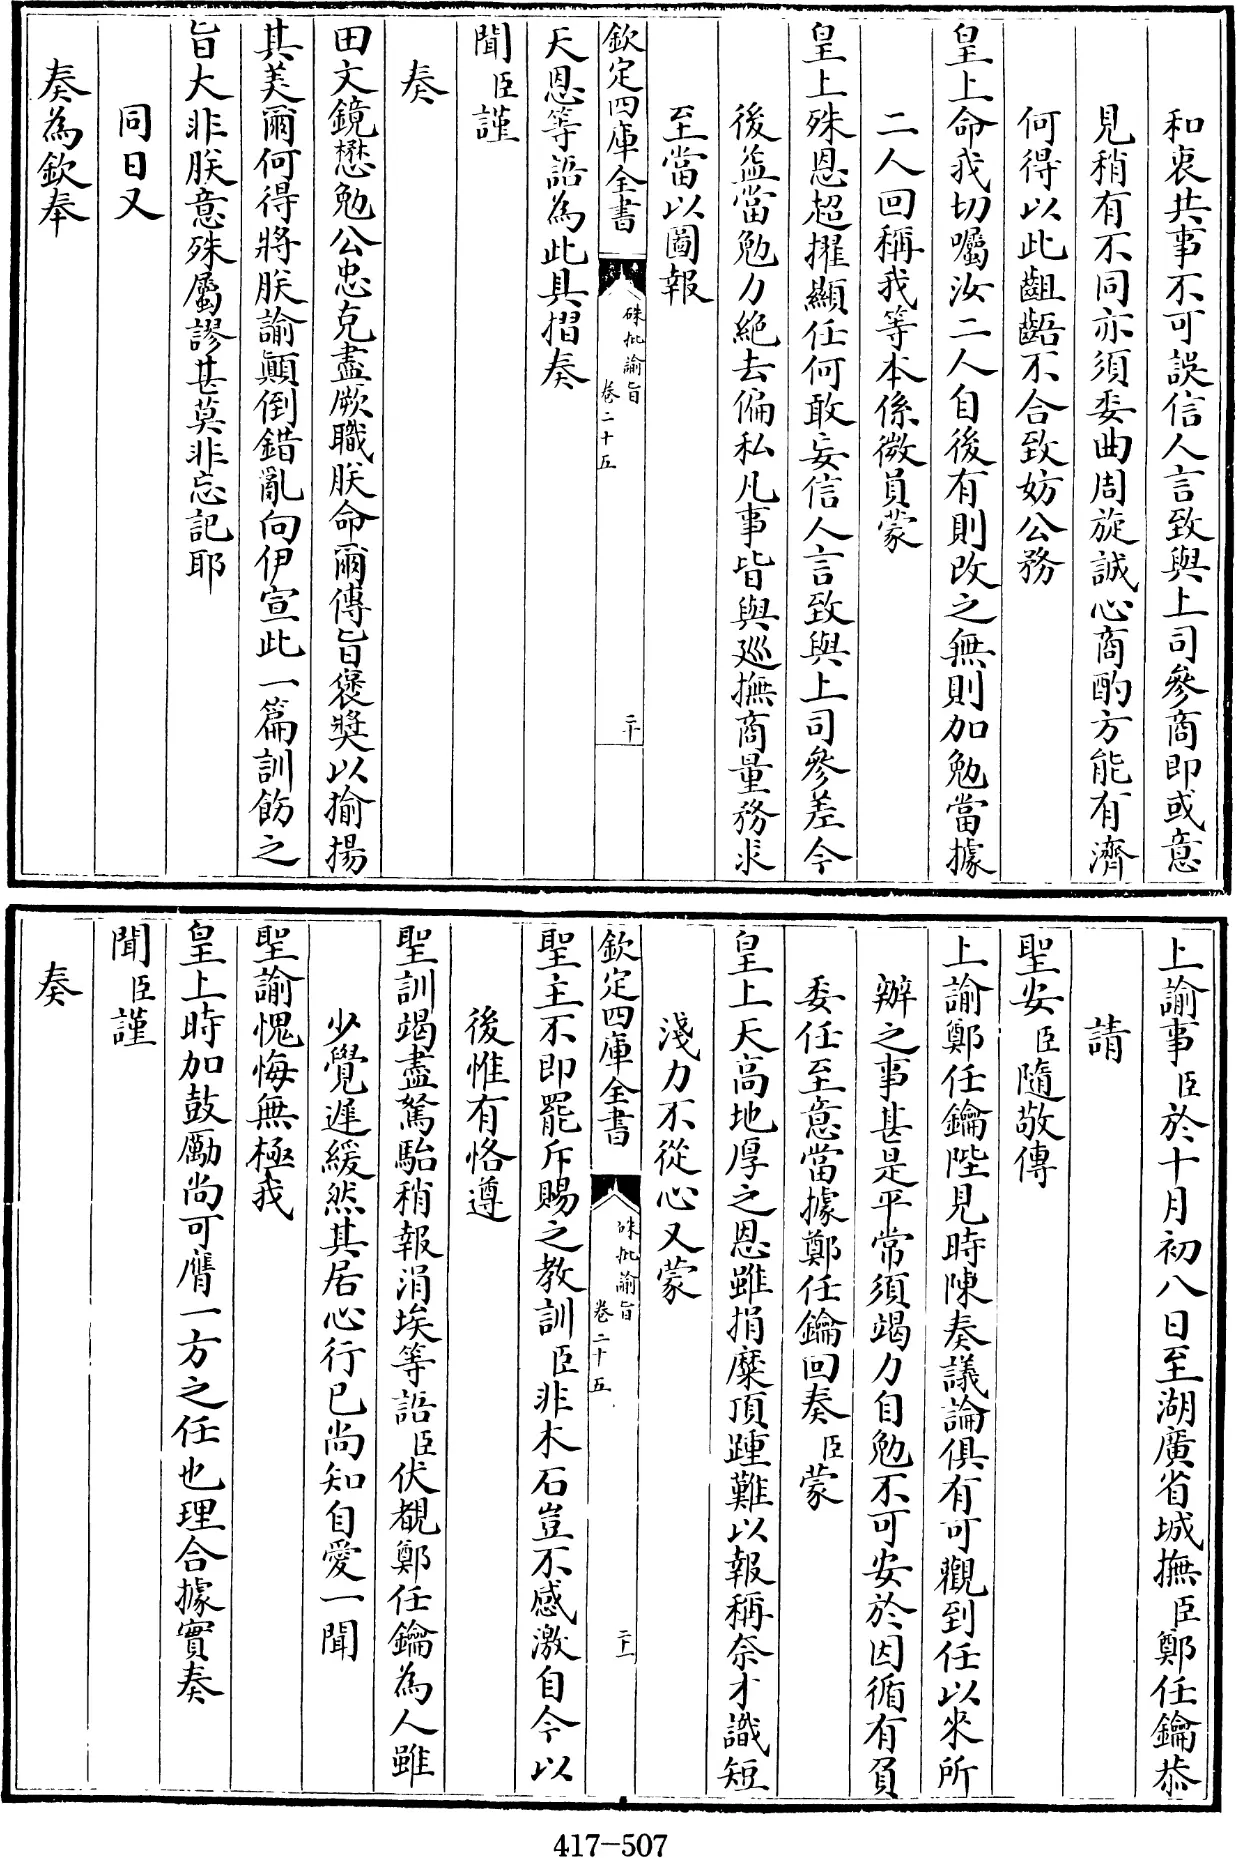 和衷共事不可誤信人言致與上司參商即或意
見稍有不同亦須委曲周旋誠心商酌方能有濟
何得以此齟齬不合致妨公務
皇上命我切囑汝二人自後有則改之無則加勉當據
二人回稱我等本係微員蒙
皇上殊恩超擢顯任何敢妄信人言致與上司參差今
後益當勉力絕去偏私凡事皆與巡撫商量務求
至當以圖報
欽定四庫全書
硃批諭旨
卷二十五
二十
天恩等語為此具摺奏
聞臣謹
奏
田文鏡懋勉公忠克盡厥職朕命爾傳旨褒獎以揄揚
其美爾何得將朕諭顛倒錯亂向伊宣此一篇訓飭之
旨大非朕意殊屬謬甚莫非忘記耶
同日又
奏為欽奉
上諭事臣於十月初八日至湖廣省城撫臣鄭任鑰恭
請
聖安臣隨敬傳
上諭鄭任鑰陛見時陳奏議論俱有可觀到任以來所
辦之事甚是平常須竭力自勉不可安於因循有負
委任至意當據鄭任鑰回奏臣蒙
皇上天高地厚之恩雖捐糜頂踵難以報稱奈才識短
淺力不從心又蒙
欽定四庫全書
硃批諭旨
卷二十五
二十一
聖主不即罷斥賜之教訓臣非木石豈不感激自今以
後惟有恪遵
聖訓竭盡駑駘稍報涓埃等語臣伏覩鄭任鑰為人雖
少覺遲緩然其居心行已尚知自愛一聞
聖諭愧悔無極我
皇上時加鼓勵尚可膺一方之任也理合據實奏
聞臣謹
奏
417-507